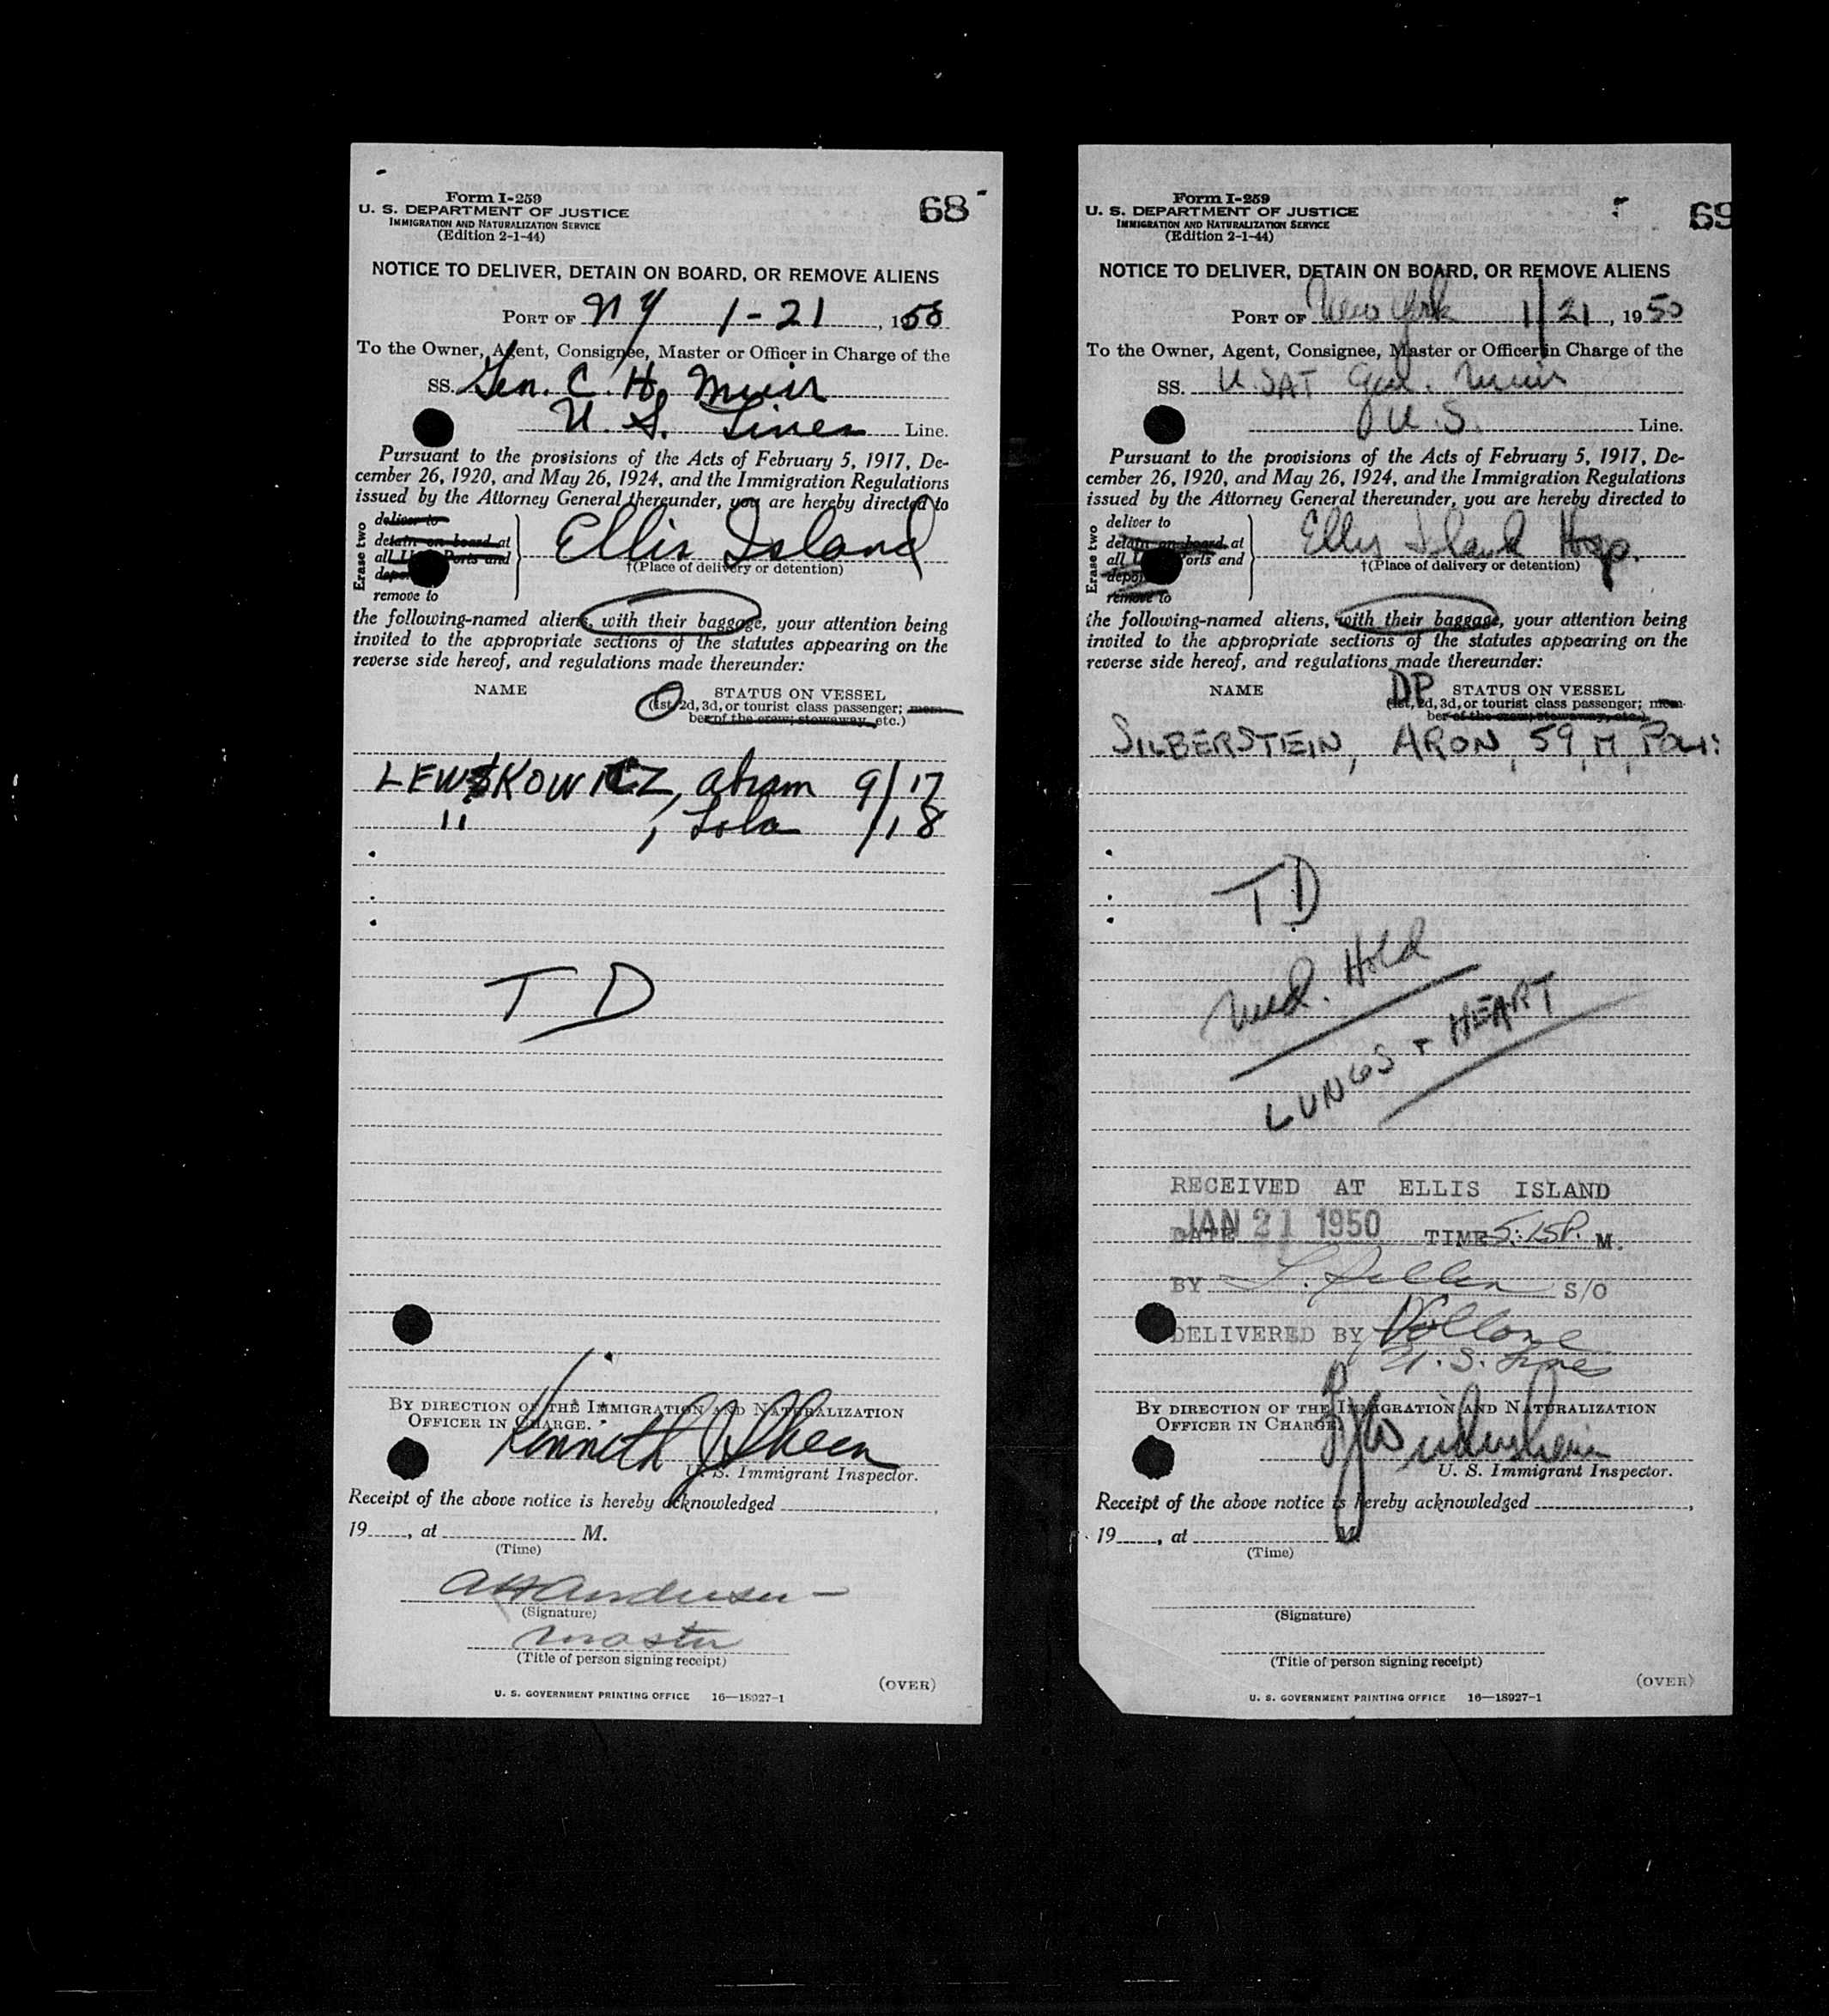 Form I-259
U. S. DEPARTMENT OF JUSTICE
IMMIGRATION AND NATURALIZATION SERVICE
(Edition 2-1-44)
68
NOTICE TO DELIVER, DETAIN ON BOARD, OR REMOVE ALIENS
PORT OF NY 1-21, 1950
To the Owner, Agent, Consignee, Master or Officer in Charge of the
SS. Gen. C. H. Muir
U. S. Lines Line.
Pursuant to the provisions of the Acts of February 5, 1917, De-
cember 26, 1920, and May 26, 1924, and the Immigration Regulations
issued by the Attorney General thereunder, you are hereby directed to
Erase two
deliver to
detain on board at
all U. Ports and
depo
remove to
Ellis Island
†(Place of delivery or detention)
the following-named aliens, with their baggage, your attention being
invited to the appropriate sections of the statutes appearing on the
reverse side hereof, and regulations made thereunder:
NAME STATUS ON VESSEL
(1st, 2d, 3d, or tourist class passenger; mem-
ber of the crew; stowaway, etc.)
LEWKOWICZ, Abram 9/17
" , Lola /18
TD
BY DIRECTION OF THE IMMIGRATION AND NATURALIZATION
OFFICER IN CHARGE.
Kenneth J. Sheen
U. S. Immigrant Inspector.
Receipt of the above notice is hereby acknowledged ,
19 , at M.
(Time)
AH Andersen
(Signature)
Master
(Title of person signing receipt)
(OVER)
U. S. GOVERNMENT PRINTING OFFICE 16—18927-1
Form I-259
U. S. DEPARTMENT OF JUSTICE
IMMIGRATION AND NATURALIZATION SERVICE
(Edition 2-1-44)
69
NOTICE TO DELIVER, DETAIN ON BOARD, OR REMOVE ALIENS
PORT OF New York 1/21, 1950
To the Owner, Agent, Consignee, Master or Officer in Charge of the
SS. USAT Gen. Muir
U.S. Line.
Pursuant to the provisions of the Acts of February 5, 1917, De-
cember 26, 1920, and May 26, 1924, and the Immigration Regulations
issued by the Attorney General thereunder, you are hereby directed to
Erase two
deliver to
detain on board at
all U orts and
depo
remove to
Ellis Island Hosp.
†(Place of delivery or detention)
the following-named aliens, with their baggage, your attention being
invited to the appropriate sections of the statutes appearing on the
reverse side hereof, and regulations made thereunder:
NAME DP STATUS ON VESSEL
(1st, 2d, 3d, or tourist class passenger; mem-
ber of the crew; stowaway, etc.)
SILBERSTEIN, ARON, 59, M, POLI:
TD
Med. Hold
LUNGS + HEART
RECEIVED AT ELLIS ISLAND
DATE JAN 21 1950 TIME 5:15P. M.
BY S/O
DELIVERED BY Vollone
U.S. Lines
BY DIRECTION OF THE IMMIGRATION AND NATURALIZATION
OFFICER IN CHARGE.
U. S. Immigrant Inspector.
Receipt of the above notice is hereby acknowledged ,
19 , at M.
(Time)
(Signature)
(Title of person signing receipt)
(OVER)
U. S. GOVERNMENT PRINTING OFFICE 16—18927-1